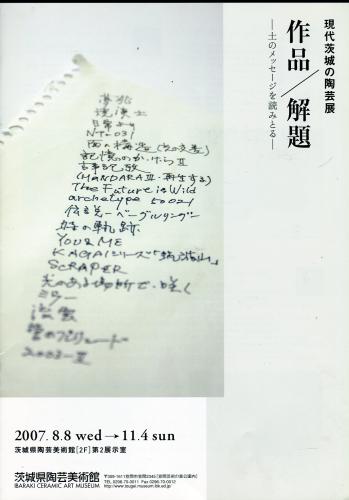 現代茨城の陶芸展
作品／解題
―土のメッセージを読みとる―
日常より
NT-031
記憶のかけらⅡ
(MANDARAⅢ・再生する)
The Future is Wild
archetype 50021
YOU & ME
KAGAIシリーズ「筑波山」
SCRAPER
光のある場所で・咲く
ミラー
2007. 8.8 wed→11.4 sun
茨城県陶芸美術館[2F]第2展示室
茨城県陶芸美術館
IBARAKI CERAMIC ART MUSEUM
〒309-1611 笠間市笠間2345(笠間芸術の森公園内)
TEL 0296-70-0011 Fax 0296-70-0012
http://www.tougei.museum.ibk.ed.jp/